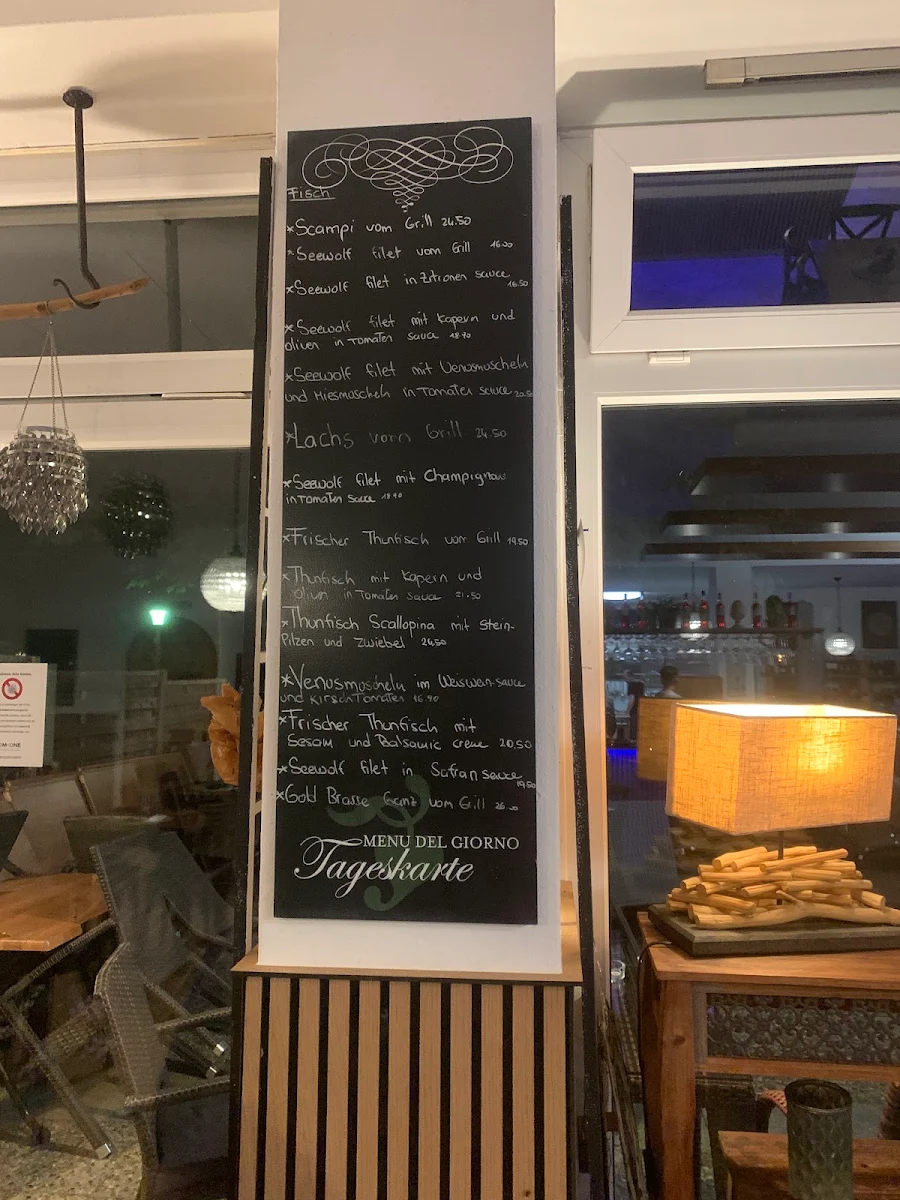 Fisch
*Scampi vom Grill 24.50
*Seewolf filet vom Grill 16.00
*Seewolf filet in Zitronen sauce
16.50
*Seewolf filet mit Kapern und
oliven in Tomaten sauce 18.90
*Seewolf filet mit Venusmuscheln
und Miesmuscheln in Tomaten sauce 20.50
*Lachs vom Grill 24.50
*Seewolf filet mit Champignon
in Tomaten sauce 18.90
*Frischer Thunfisch vom Grill 19.50
*Thunfisch mit Kapern und
oliven in Tomaten sauce 21.50
*Thunfisch Scallopina mit Stein-
Pilzen und Zwiebel 24.50
*Venusmuscheln im Weiswein sauce
und Kirsch Tomaten 16.90
*Frischer Thunfisch mit
Sesam und Balsamic creme 20.50
*Seewolf filet in Safran sauce
19.50
*Gold Brasse Ganz vom Grill
MENU DEL GIORNO
Tageskarte